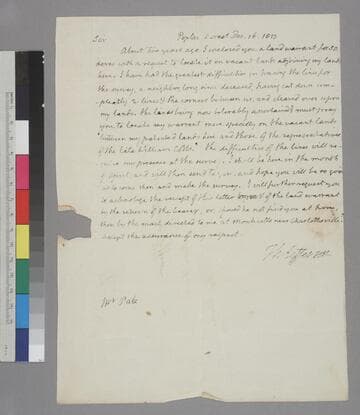 Sir Poplar Forest Dec. 16. 1813
About two years ago I inclosed you a land warrant for 50.
acres with a request to locate it on vacant lands adjoining my land
here. I have had the greatest difficulties in tracing the lines for
the survey, a neighbor, long since deceased, having cut down com-
pleatly a line & the corners between us, and cleared over upon
my lands. the lands being now tolerably ascertained I must pray
you to locate my warrant more specially on the vacant lands
between my patented lands here and those of the representatives
of the late William Cobbs. the difficulties of the lines will re-
quire my presence at the survey. I shall be here in the month
of April and will then send to you, and hope you will be so good
as to come then and make the survey. I will further request you
to acknolege the receipt of this letter and of the land warrant
in the return of the bearer, or, should he not find you at home,
then by the mail, directed to me at Monticello near Charlottesville.
Accept the assurance of my respect.
Th: Jefferson
Mr. Pate